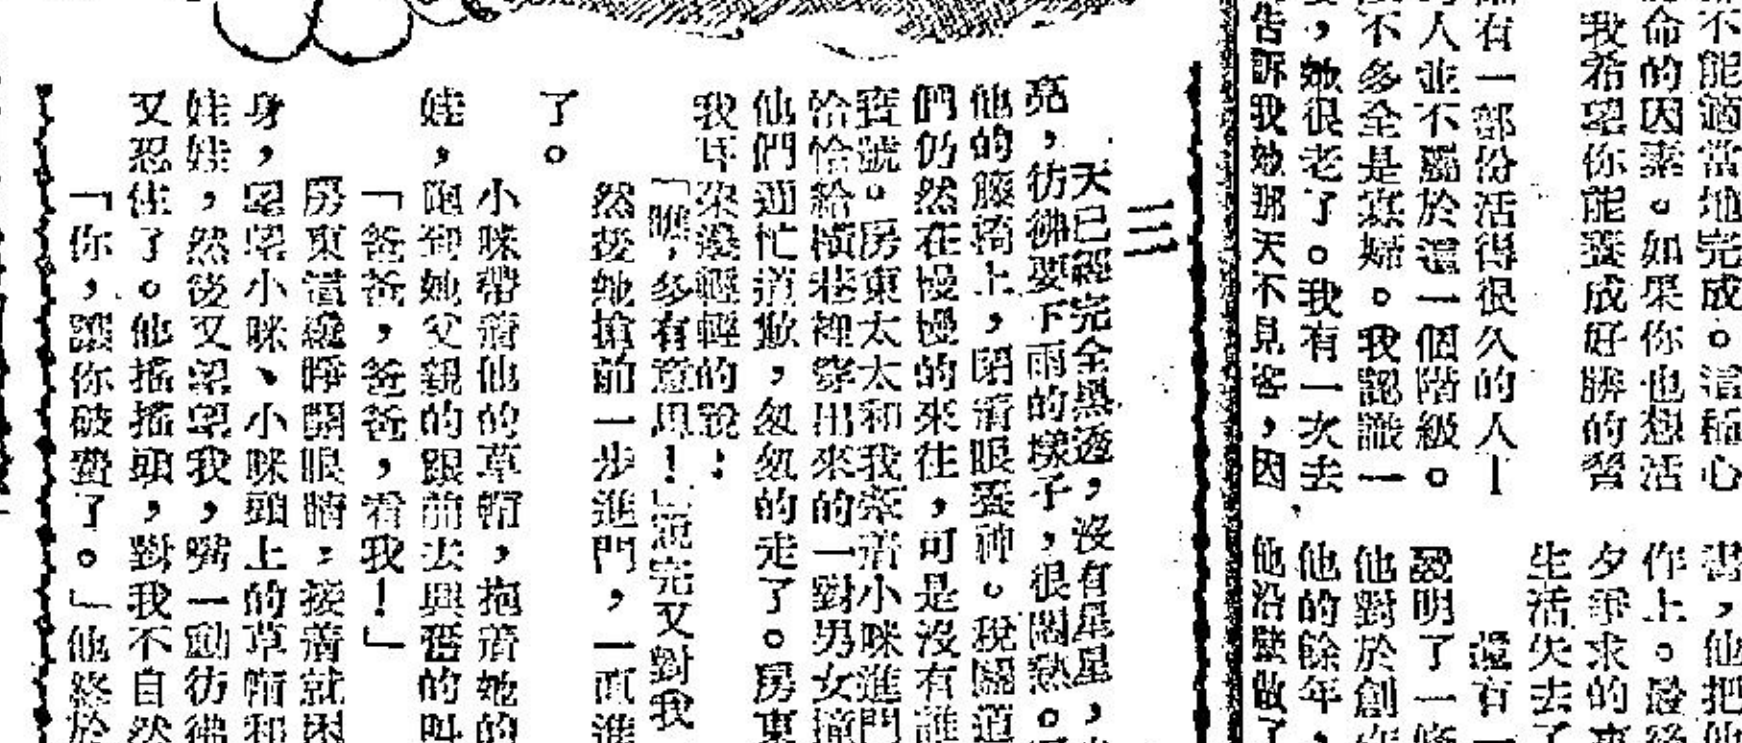 不能適當地完成。這種心
命的因素。如果你也想活
我希望你能養成好勝的習
有一部份活得很久的人—
人並不屬於這一個階級。
不多全是寡婦。我認識一
，她很老了。我有一次去
告訴我她那天不見客，因
書，他把他
作上。最後
夕爭求的東
生活失去了
還有一
發明了一條
他對於創作
他的餘年，
他沿壁做了
三
天已經完全黑透，沒有星星，
亮，彷彿要下雨的樣子，很悶熱。
他的籐椅上，閉着眼養神。稅關道
們仍然在慢慢的來往，可是沒有誰
寶號。房東太太和我牽着小咪進門
恰恰給橫巷裡穿出來的一對男女撞
他們連忙道歉，匆匆的走了。房東
我耳朵邊輕輕的說：
「瞧，多有意思！」說完又對我
然後她搶前一步進門，一直進
了。
小咪帶着他的草帽，抱着她的
娃，跑到她父親的跟前去興奮的叫
「爸爸，爸爸，看我！」
房東這纔睜開眼睛，接着就困
身，望望小咪、小咪頭上的草帽和
娃娃，然後又望望我，嘴一動彷彿
又忍住了。他搖搖頭，對我不自然
「你，讓你破費了。」他終於